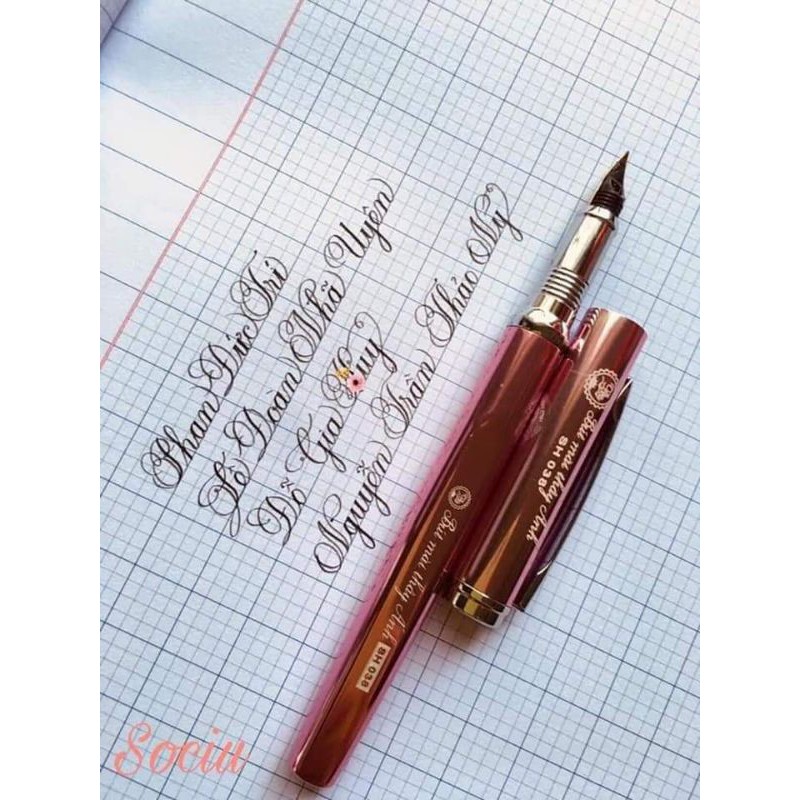 Phan Đức Trí
Tô Doan Nhã Uyên
Đỗ Gia Huy
Nguyễn Trần Thảo My
Bút mài thầy Ánh
SH 038
Bút mài thầy Ánh SH 038
Sociu